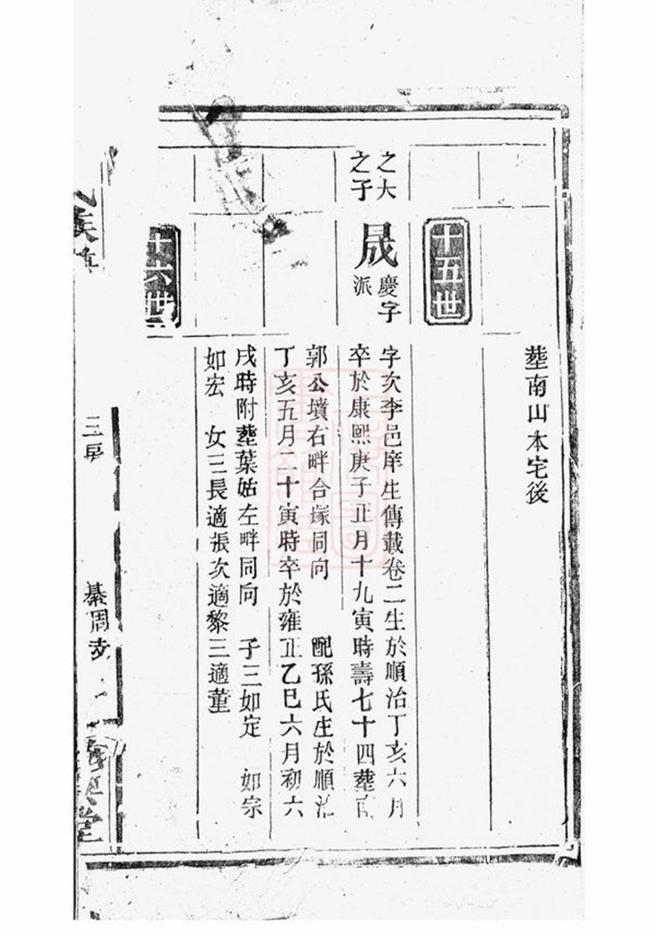 塟南山本宅後
十五世
之大
之子
晟
慶字
派
字次李邑庠生傳載卷二生於順治丁亥六月
卒於康熙庚子正月十九寅時壽七十四塟
郭公墳右畔合塚同向 配孫氏生於順治
丁亥五月二十寅時卒於雍正乙巳六月初六
戌時附塟葉姑左畔同向 子三如定 如宗
如宏 女三長適張次適黎三適董
十六世
族
三房
綦周支
堂